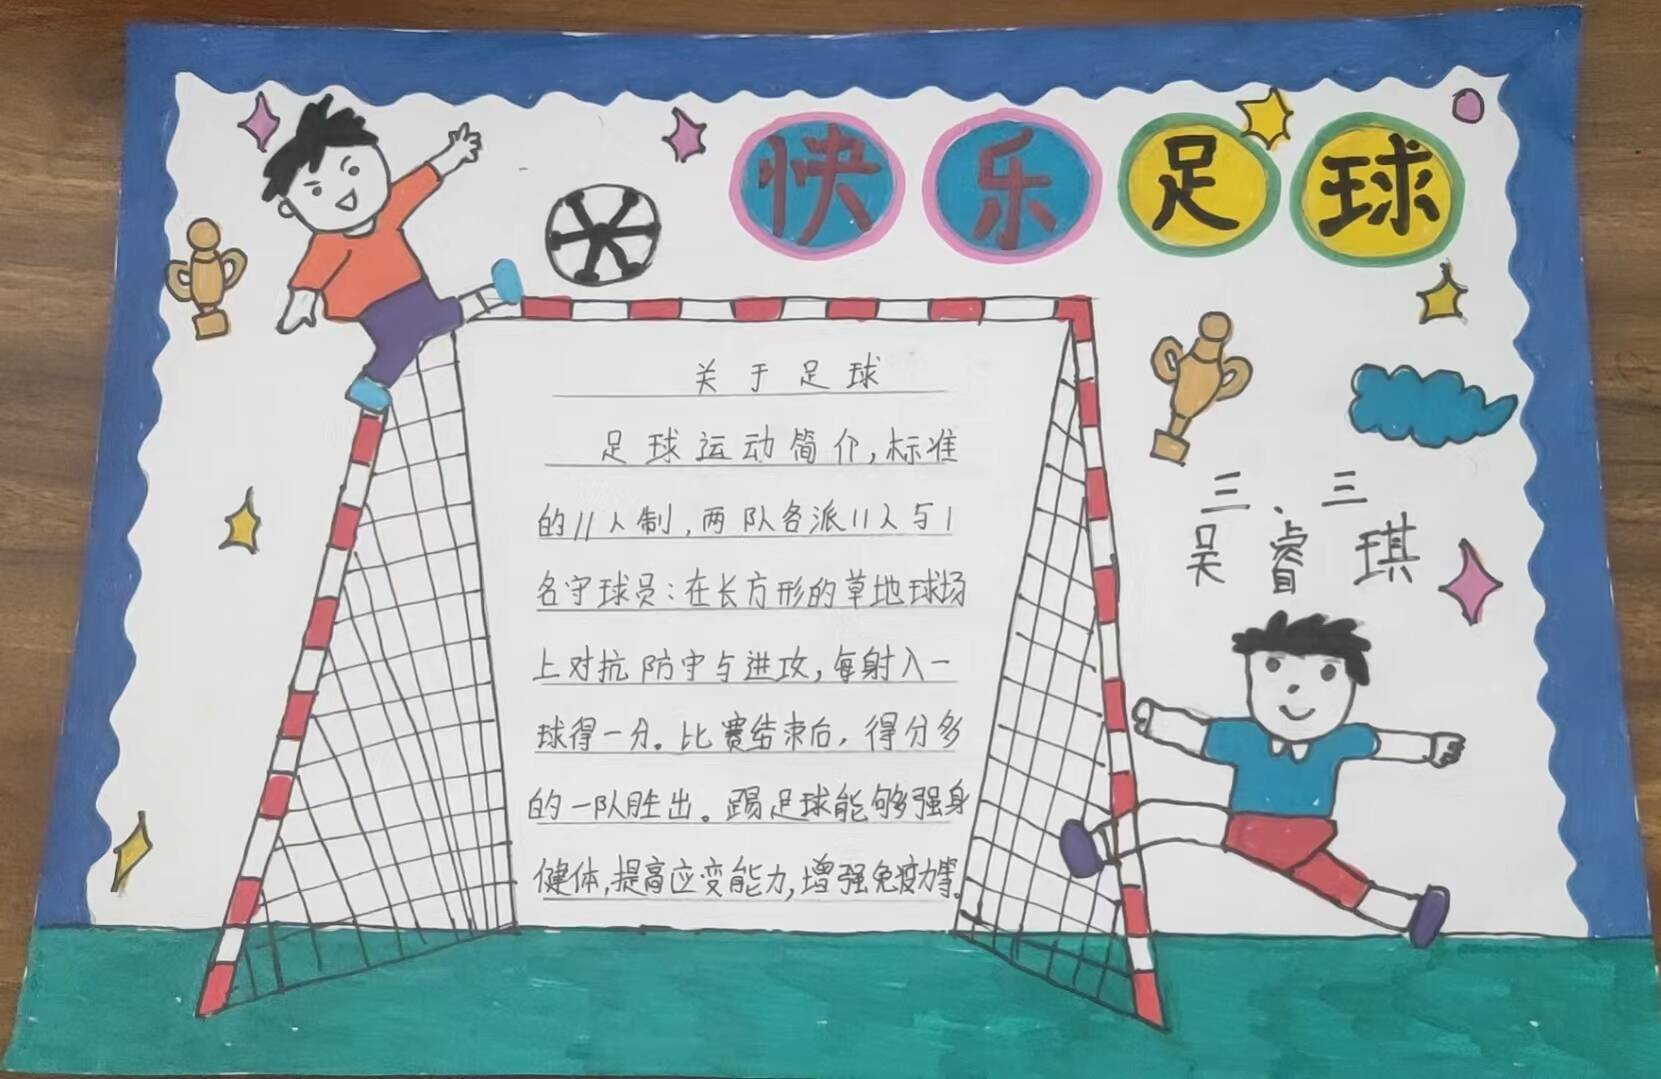 快乐足球
关于足球
足球运动简介,标准
的11人制,两队各派11人与1
名守球员:在长方形的草地球场
上对抗防守与进攻,每射入一
球得一分。比赛结束后,得分多
的一队胜出。踢足球能够强身
健体,提高应变能力,增强免疫力等。
三、三
吴睿琪